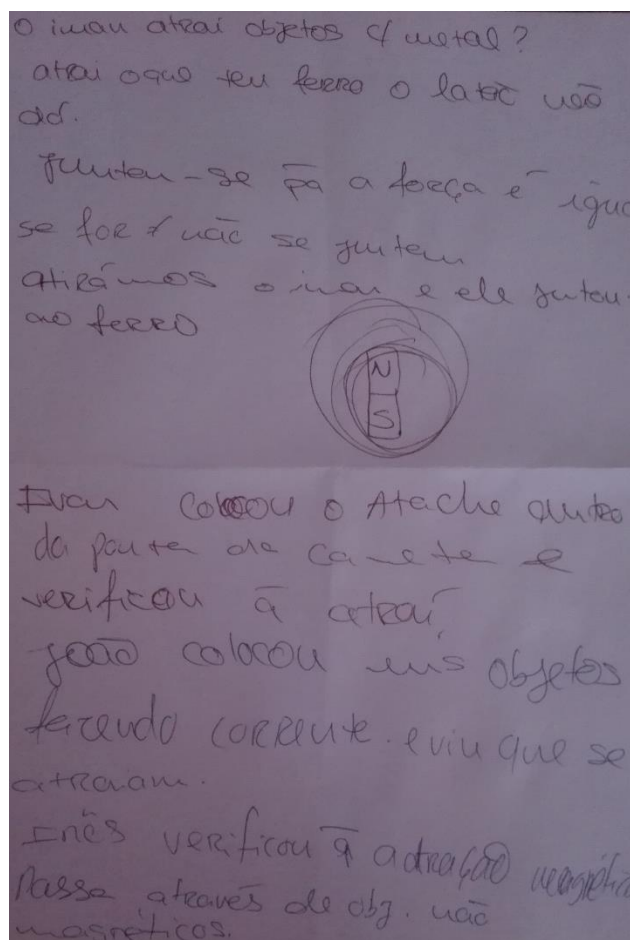 O iman atrai objetos c/ metal?
atrai oque tem ferro o latão não
dá.
Juntam-se pq a força é igua
se for ≠ não se juntam
atirámos o iman e ele juntou-
ao ferro
N
S
Ivan colocou o Atache dentro
da ponta da caneta e
verificou q atraí
João colocou uns objetos
fazendo corrente. e viu que se
atraiam.
Inês verificou q a atração magnétic
passa através de obj. não
magnéticos.